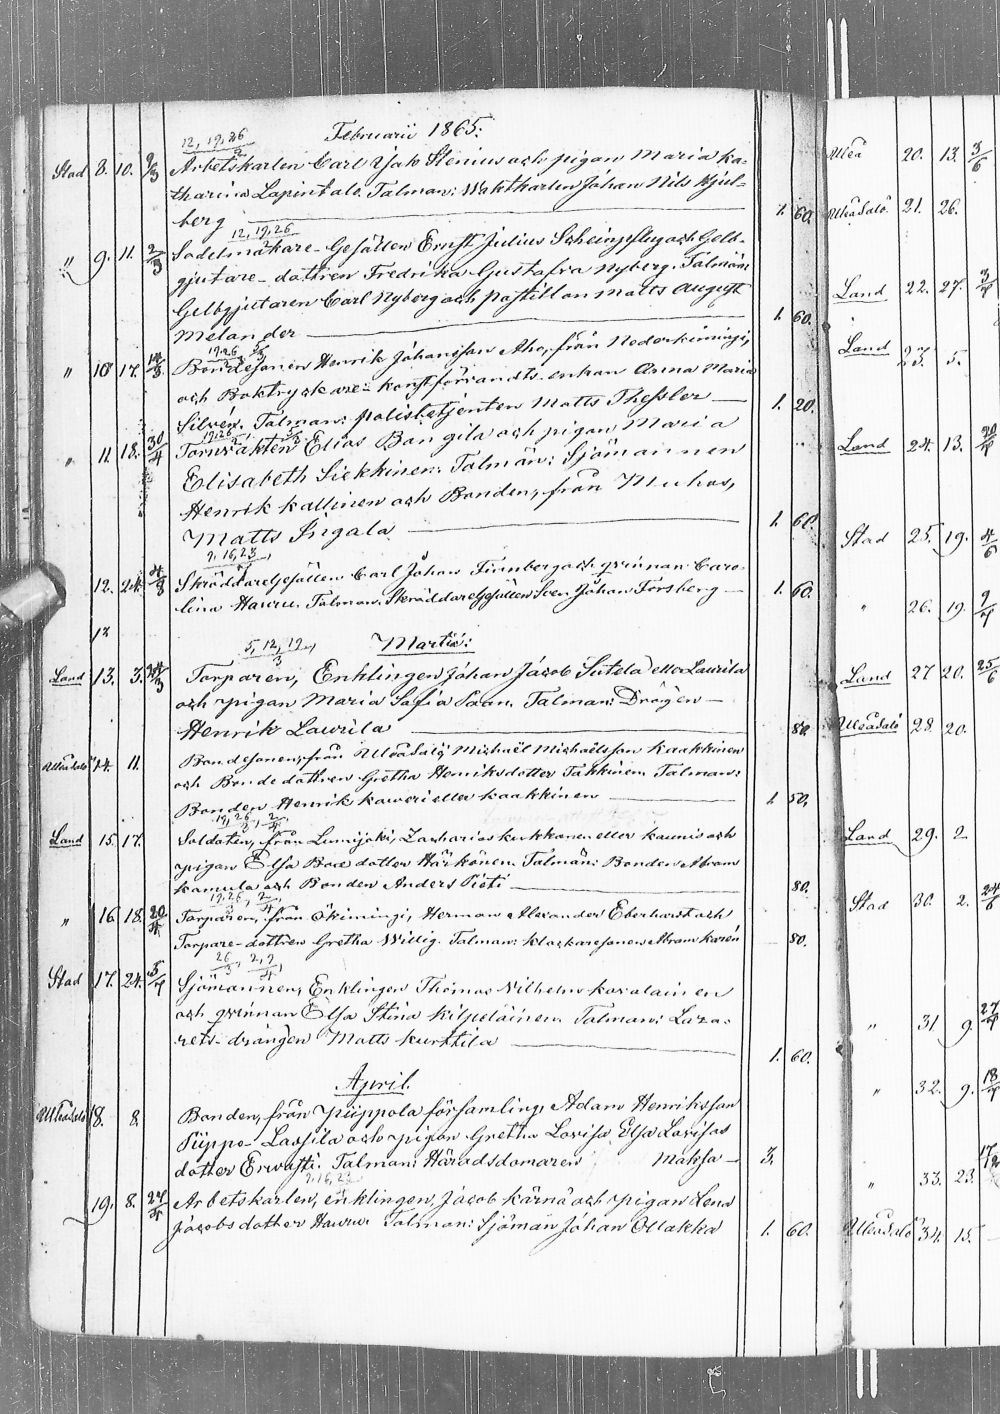 Februarii 1865:
12, 19, 26
Stad 8. 10. 9/3 Arbetskarlen Carl Isak Stenius och pigan Maria Ka-
tharina Lapintalo. Talman: Waktkarlen Johan Nils Kjul-
berg 1. 60.
12, 19, 26
" 9. 11. 2/3 Sadelmakare-Gesällen Ernst Julius och Gelb-
gjutare-dottren Fredrika Gustafva Nyberg. Talmän:
Gelbgjutaren Carl Nyberg och postillon Matts August
Melander 1. 60.
19. 26
" 10 17. 14/3 Bondesonen Henrik Johansson Aho, från Nederkiimingi,
och Boktryckare-konstförvandts-enkan Anna Maria
Silvén. Talman: polisbetjenten Matts Thessler 1. 20.
19. 26
" 11. 18. 30/4 Tornväkten Elias Bangila och pigan Maria
Elisabeth Siekkinen. Talmän: Sjömannen
Henrik Kallinen och Bonden, från Muhos,
Matts Ingala 1. 60.
9, 16, 23
12. 24. 4/8 SkräddareGesällen Carl Johan Finnberg och qvinnan Caro-
lina Hauru. Talman: SkräddareGesällen Sven Johan Forsberg 1. 60.
12
Martii:
5, 12, 19/3
Land 13. 3. Torparen, Enklingen Johan Jacob Sutela eller Laurila
och pigan Maria Sofia Saan. Talman: Drängen
Henrik Laurila 80.
Uleåsalo 14. 11. Bondesonen, från Uleåsalo, Michaël Michaëlsson Kaakkinen
och Bondedottren Gretha Henriksdotter Takkinen. Talman:
Bonden Henrik Kaweri eller Kaakkinen 1. 50.
19, 26/3, 2/4
Land 15. 17. Soldaten, från Lumijoki, Zacharias Kukkonen eller Kaunis och
pigan Elsa Bräddotter Härkönen. Talmän: Bonden Abram
Kamula och Bonden Anders Pieti 80.
19. 26/3, 2/4
" 16 18. 20/4 Torparen, från Kiimingi, Herman Alexander Eberharst och
Torpare-dottren Gretha Willig. Talman: Klockaresonen Abram Karén 80.
26/3, 2, 9/4
Stad 17. 24. 5/7 Sjömannen, Enklingen Thomas Wilhelm Karalainen
och qvinnan Elsa Stina Kilpeläinen. Talman: Laza-
rets-drängen Matts Kurttila 1. 60.
April.
Uleåsalo 18. 8. Bonden, från Piippola församling, Adam Henriksson
Piippo-Lassila och pigan Gretha Lovisa Elsa Lovisas
dotter Erwasti. Talman: Häradsdomaren Maksa 3.
9, 16, 23
19. 8. 27/4 Arbetskarlen, enklingen, Jacob Kärnä och pigan Lena
Jacobsdotter Hauru. Talman: Sjöman Johan Ollakka 1. 60.
Uleå 20. 13. 3/6
Uleåsalo 21. 26.
Land 22. 27.
Land 23. 5.
Land 24. 13. 30/4
Stad 25. 19. 4/6
" 26. 19. 9/7
Land 27 20. 25/6
Uleåsalo 28. 20.
Land 29. 2
Stad 30. 2. 24/6
" 31 9. 27/4
" 32. 9. 18/4
" 33. 23.
Uleåsalo 34. 15.